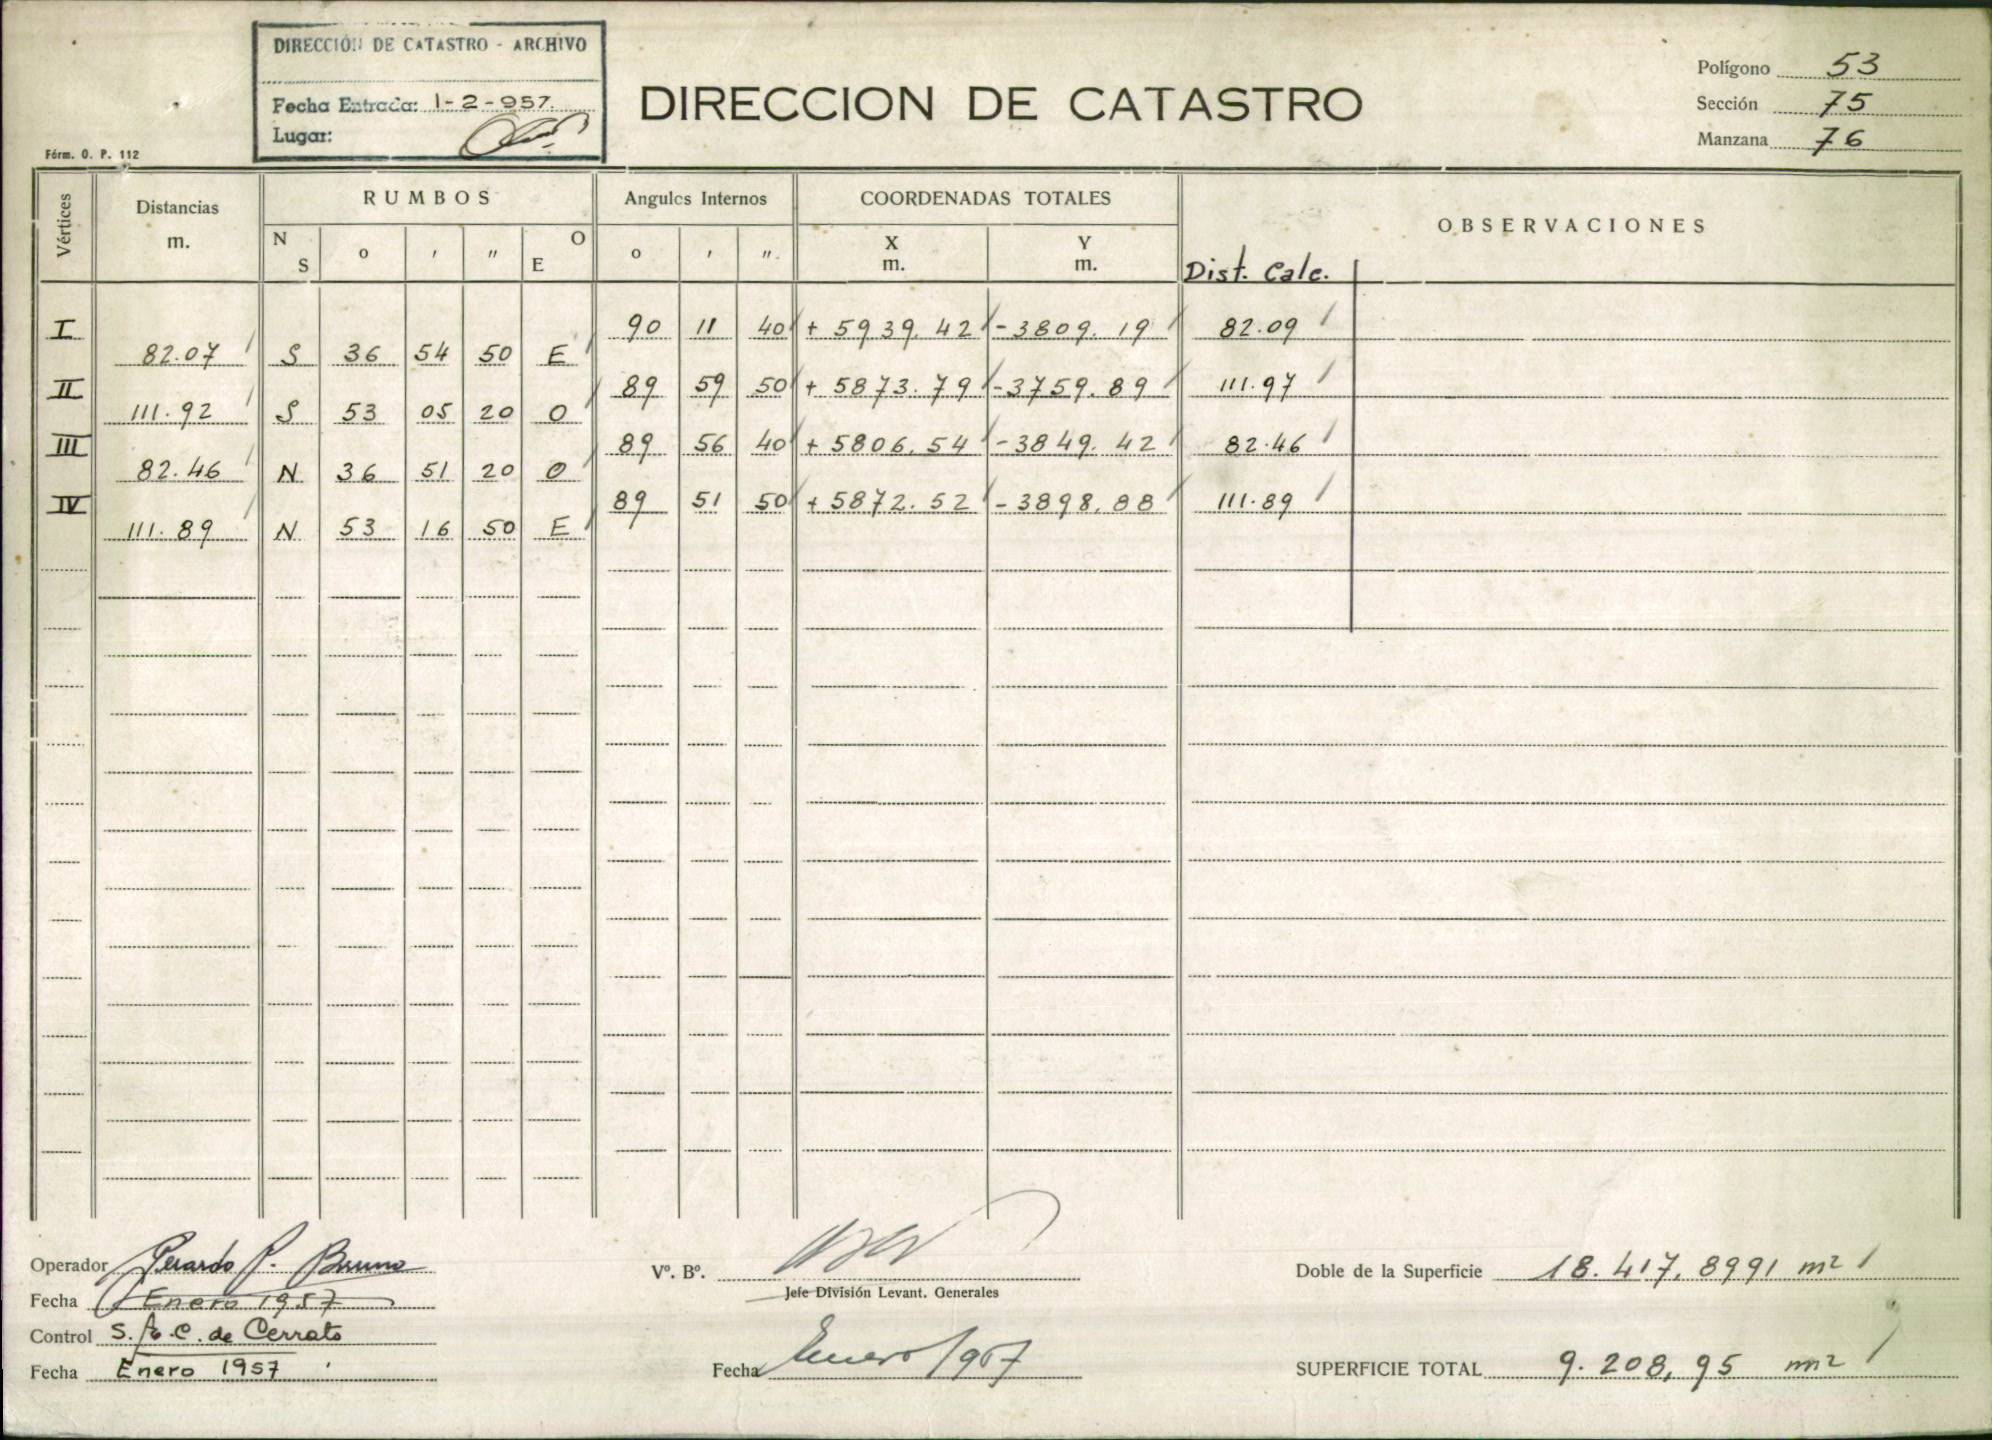 DIRECCIÓN DE CATASTRO - ARCHIVO
Fecha Entrada: 1-2-957.
Lugar:
DIRECCION DE CATASTRO
Polígono 53
Sección 75
Manzana 76
Fórm. O. P. 112
Vértices Distancias m. RUMBOS Angulos Internos COORDENADAS TOTALES OBSERVACIONES
N S o ' " O E o ' " X m. Y m. Dist. Calc.
I 90 11 40 + 5939.42 - 3809.19 82.09
82.07 S 36 54 50 E
II 89 59 50 + 5873.79 - 3759.89 111.97
111.92 S 53 05 20 O
III 89 56 40 + 5806.54 - 3849.42 82.46
82.46 N 36 51 20 O
IV 89 51 50 + 5872.52 - 3898.88 111.89
111.89 N 53 16 50 E
Operador Gerardo P. Bruno
Fecha Enero 1957
Control S. C. de Cerrato
Fecha Enero 1957
Vº. Bº.
Jefe División Levant. Generales
Fecha Enero/957
Doble de la Superficie 18.417,8991 m2
SUPERFICIE TOTAL 9.208,95 m2